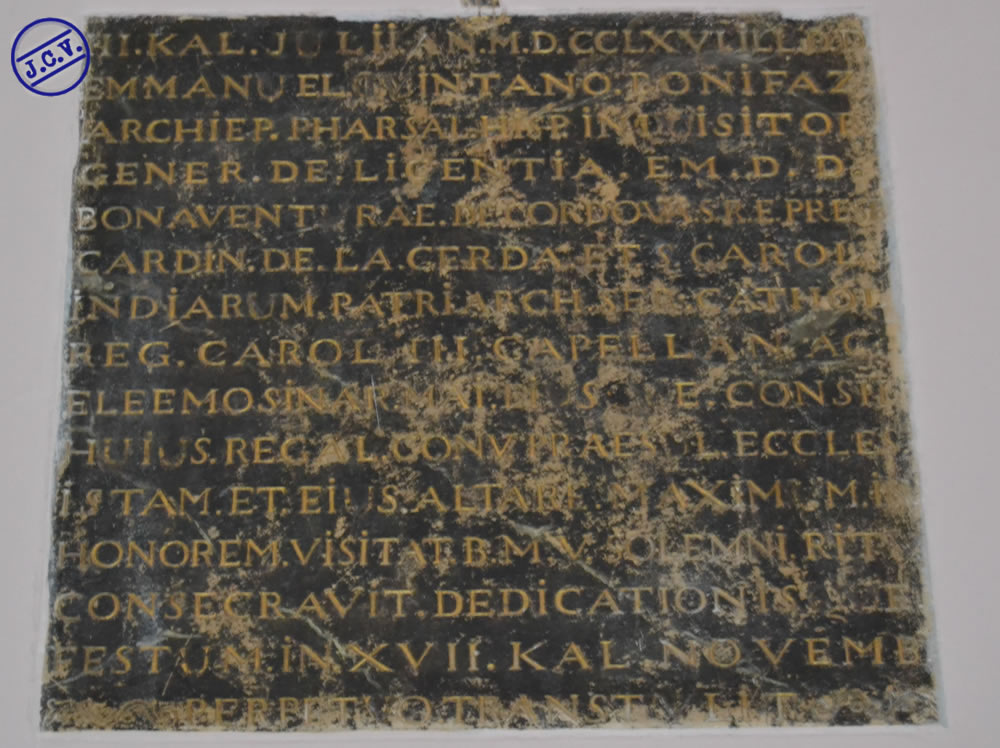 J.C.V.
III. KAL. JULII. AN. M.D.CCLXVI. ILL.
EMMANUEL QUINTANO. BONIFAZ
ARCHIEP. PHARSAL. HISP. INQUISITOR
GENER. DE. LICENTIA. EM. D. D.
BONAVENTURAE. DE CORDOVA. S.R.E. PRE
CARDIN. DE. LA. CERDA. ET S CAROL
INDIARUM. PATRIARCH. SER. CATHOL
REG. CAROL III. CAPELLAN. AC
ELEEMOSINAR MAI. CONSIL
HUIUS. REGAL. CONV. PRAESUL. ECCLES
ISTAM. ET. EIUS. ALTARE MAXIMUM. IN
HONOREM. VISITAT. B. M. V. SOLEMNI. RITU
CONSECRAVIT. DEDICATIONIS
FESTUM. IN. XVII. KAL. NOVEMB
PERPETUO TRANSTULIT.